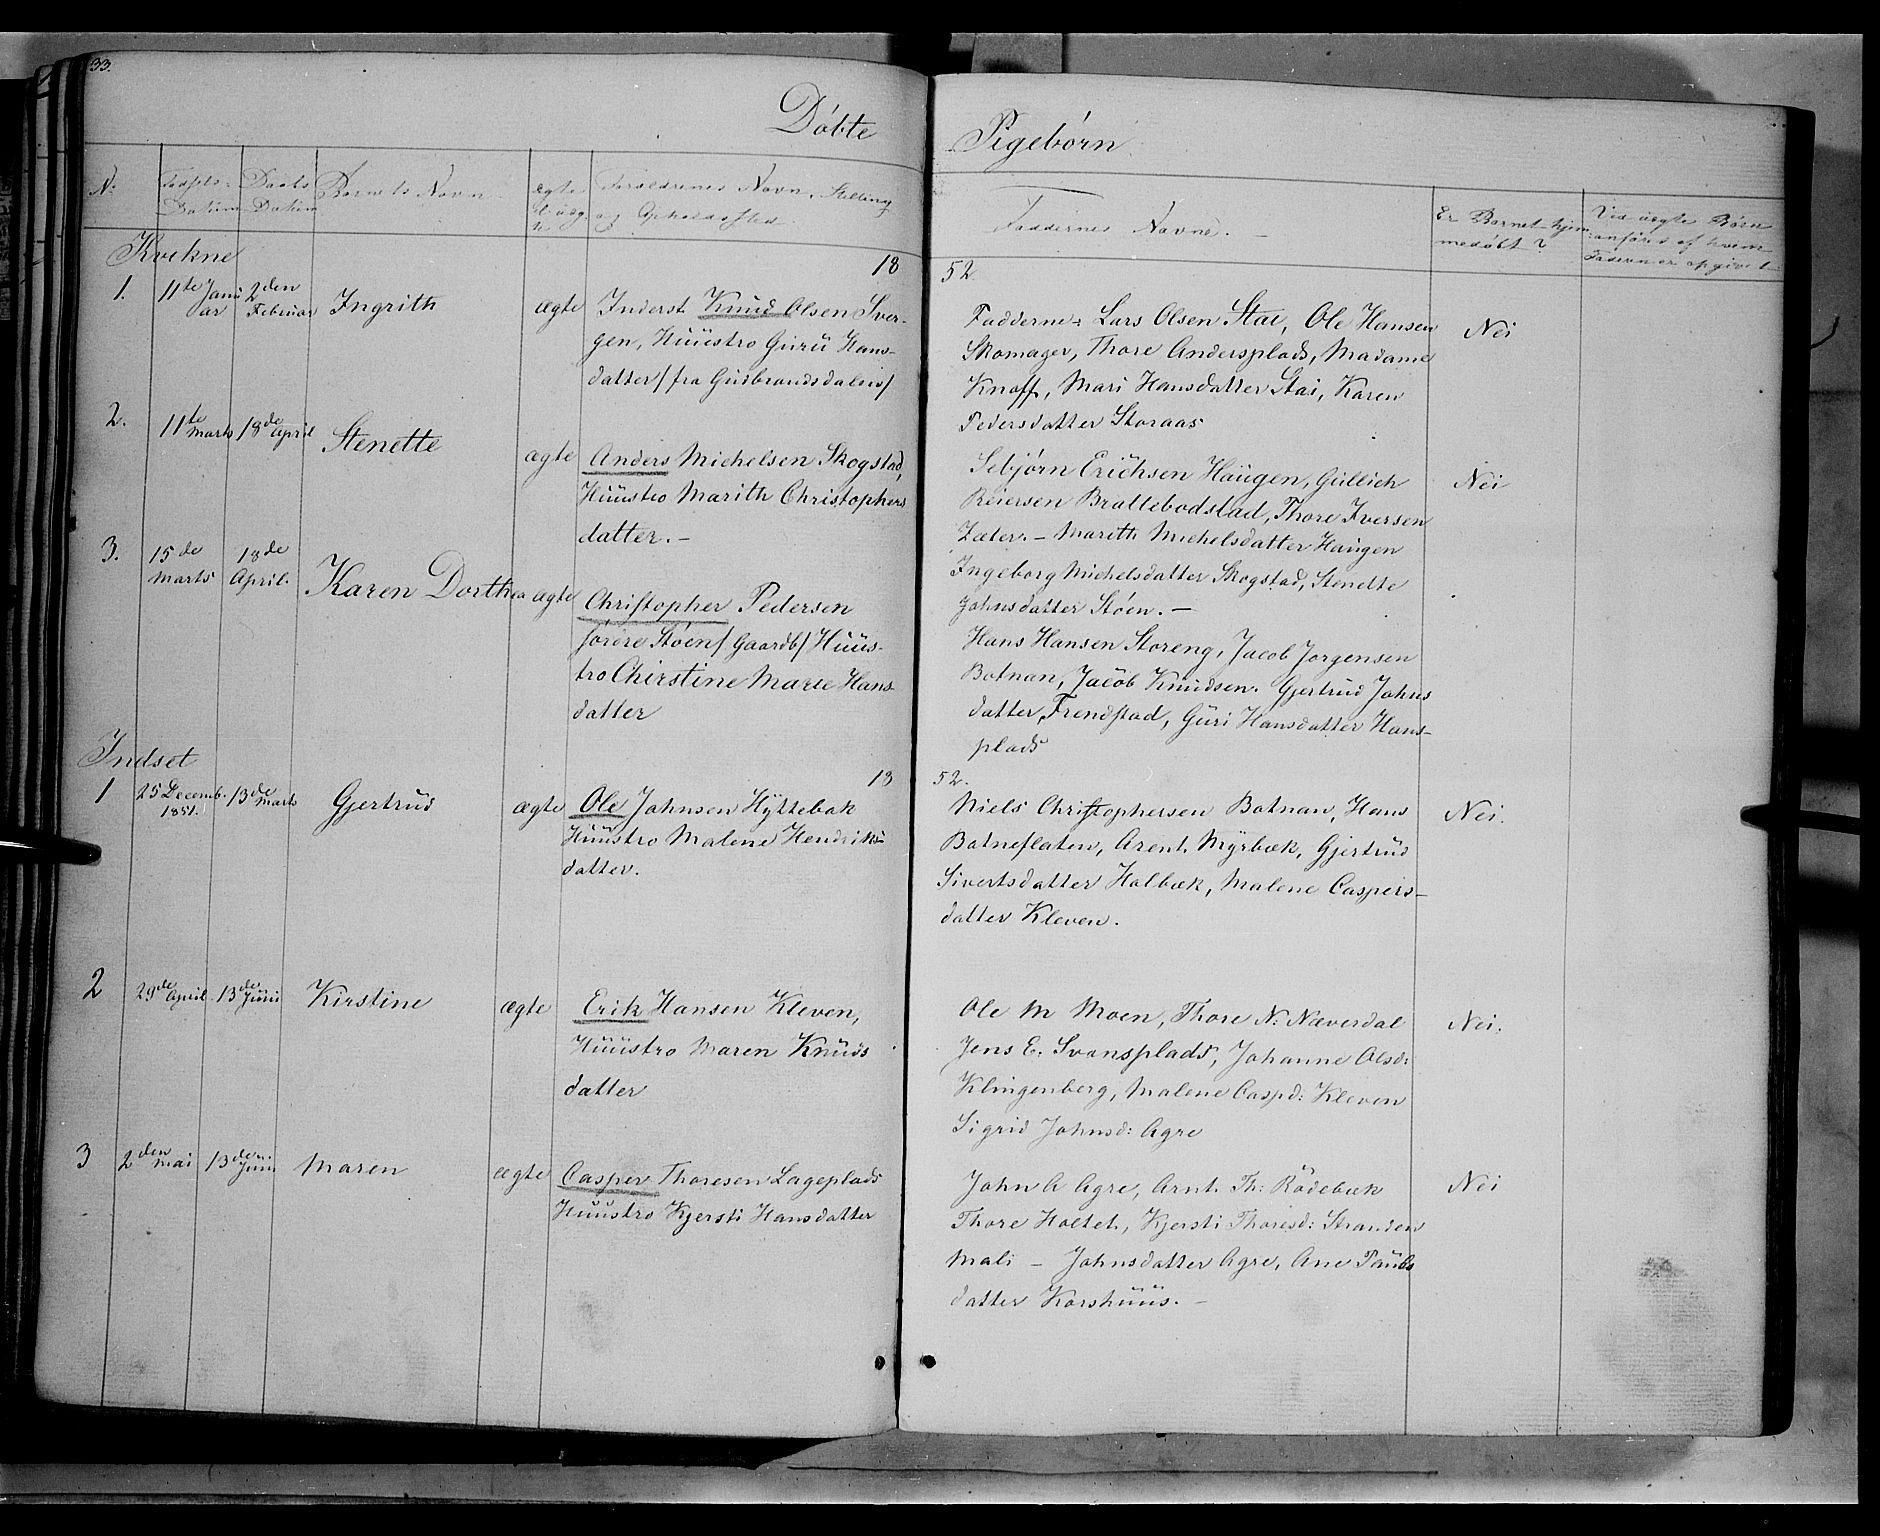 33.
Döbte Pigebørn
N:
Fødsels-
Datum
Daabs
Datum
Barnets Navn
ægte
Forældrenes Navn, Stilling
og Opholdssted
Faddernes Navne. —
Er Barnet hjem-
medøbt?
Ved uægte Børn
anföres af hvem
Faderen er opgivet
Kvikne
1852
1. 11te Janu 2den
ar Februar
Ingrith
ægte
Inderst Knud Olsen Sver-
gen, Huustro Guru Hans-
datter/ fra Gudbrandsdalen/
Fadderne: Lars Olsen Stai, Ole Hansen
Skomager, Thore Andersplads, Madame
Knoff, Mari Hansdatter Stai, Karen
Pedersdatter Storaas
Nei
2. 11te Marts 18de April
Stenette
ægte
Anders Michelsen Skogstad,
Huustro Marith Christophers
datter. —
Sebjørn Erichsen Haugen, Gullich
Reiersen Brattebodstad, Thore Iversen
Zæter. — Marith Michelsdatter Haugen
Ingeborg Michelsdatter Skogstad, Stenette
Johnsdatter Stöen. —
Nei
3. 15de 18de
Marts April.
Karen Dorthea
ægte
Christopher Pedersen
Støen/ Gaardb/ Huus-
tro Chirstine Marie Hans
datter
Hans Hansen Storeng, Jacob Jorgensen
Botnan, Jacob Knudsen. Gjertrud Johns
datter, Frendstad, Guri Hansdatter Hans-
plads
Indset
1852.
1 25 Decemb. 13de Marts
1851.
Gjertrud
ægte
Ole Johnsen Hyttebak
Huustro Malene Hendriks-
datter.
Niels Christophersen Botnan, Hans
Botneflaten, Arent. Myrbæk, Gjertrud
Sivertsdatter Holbæk, Malene Caspers-
datter Kleven.
Nei.
2 29de April. 13de Juni
Kirstine
ægte
Erik Hansen Kleven,
Huustro Maren Knuds
datter
Ole M Moen, Thore N: Næverdal
Jens E. Svansplads, Johanne Olsd:
Klingenberg, Malene Caspd: Kleven
Sigrid Johnsd: Agre
Nei.
3 2den Mai 13den Juni
Maren
ægte
Casper Thoresen Lageplads
Huustro Kjersti Hansdatter
John A Agre, Arnt. Th: Rödebæk
Thore Holtet, Kjersti Thoresd: Stranden
Mali — Johnsdatter Agre, Ane Pauls
datter Korshuus. —
Nei